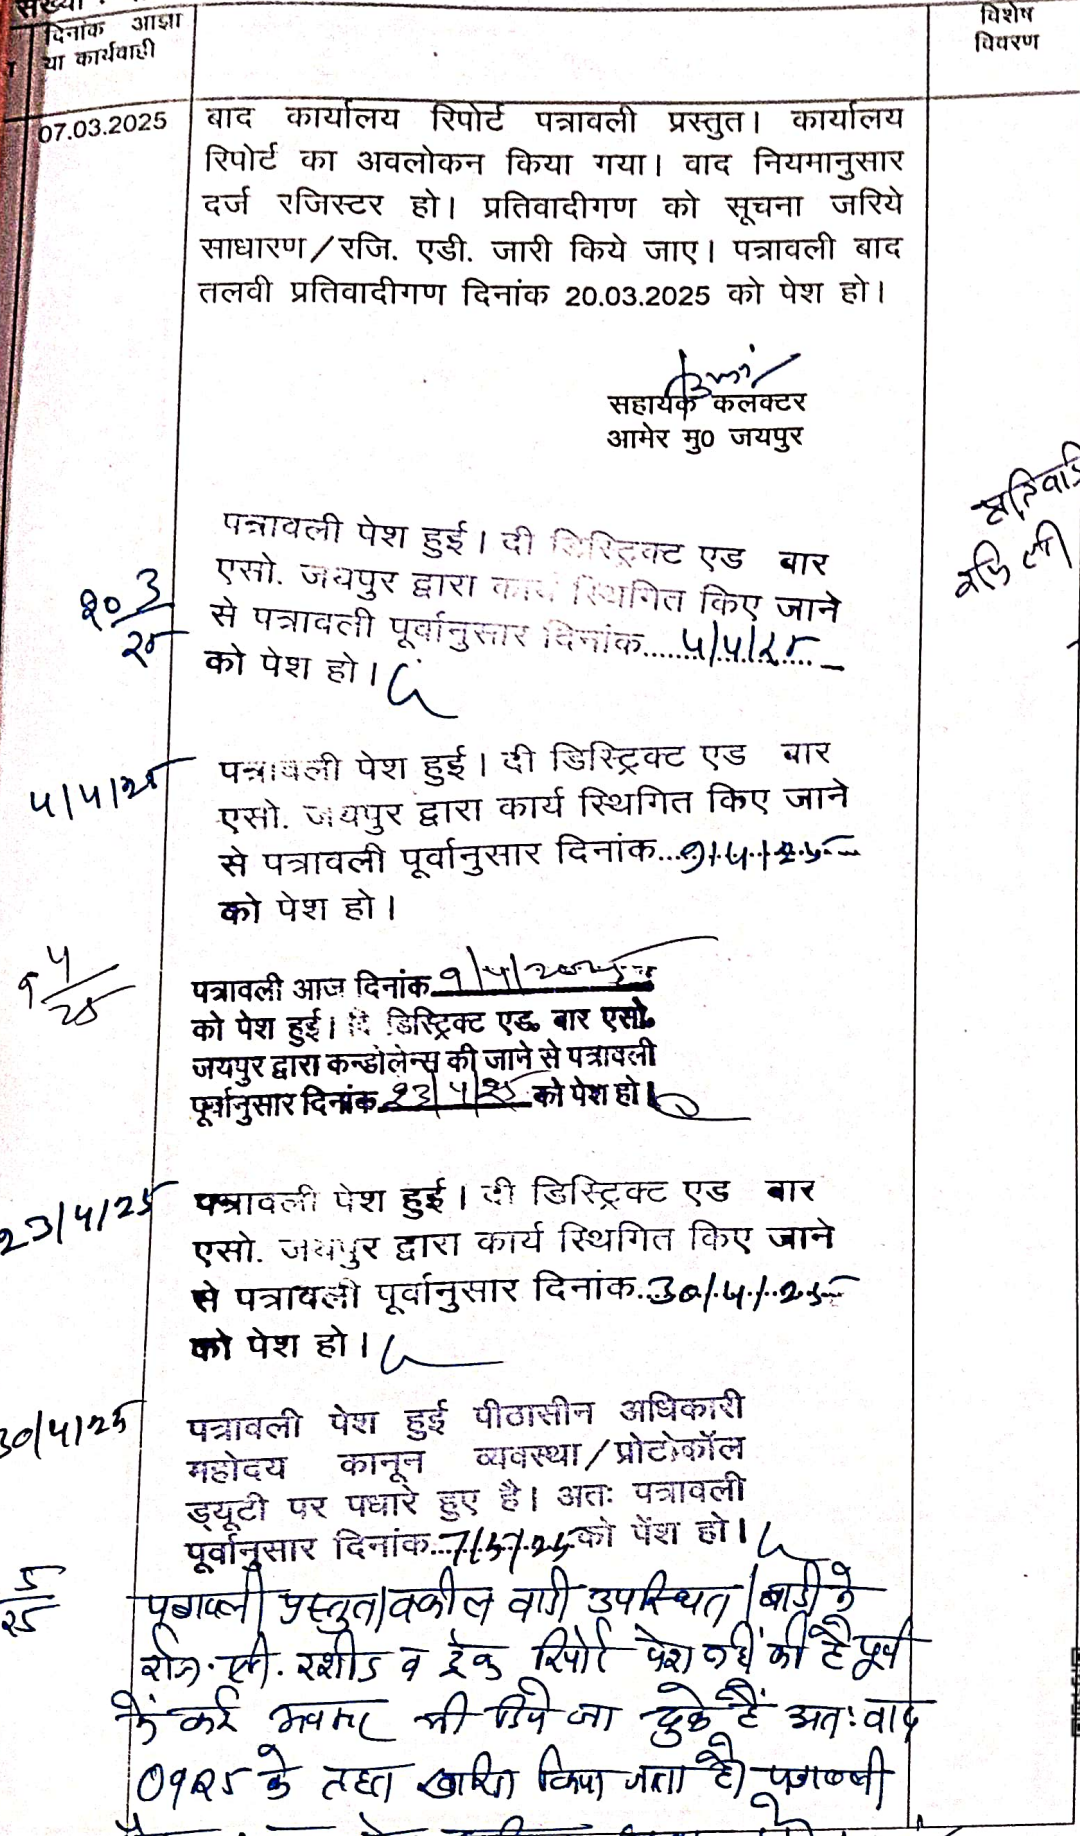 संख्या :
दिनांक आज्ञा
या कार्यवाही
विशेष
विवरण
07.03.2025
बाद कार्यालय रिपोर्ट पत्रावली प्रस्तुत। कार्यालय
रिपोर्ट का अवलोकन किया गया। वाद नियमानुसार
दर्ज रजिस्टर हो। प्रतिवादीगण को सूचना जरिये
साधारण/रजि. एडी. जारी किये जाए। पत्रावली बाद
तलवी प्रतिवादीगण दिनांक 20.03.2025 को पेश हो।
सहायक कलक्टर
आमेर मु0 जयपुर
२० 3/२५
पत्रावली पेश हुई। दी डिस्ट्रिक्ट एड बार
एसो. जयपुर द्वारा कार्य स्थिगित किए जाने
से पत्रावली पूर्वानुसार दिनांक.....4/4/25
को पेश हो।
4/4/25
पत्रावली पेश हुई। दी डिस्ट्रिक्ट एड बार
एसो. जयपुर द्वारा कार्य स्थिगित किए जाने
से पत्रावली पूर्वानुसार दिनांक...9/4/25
को पेश हो।
9 4/25
पत्रावली आज दिनांक 9/4/2025
को पेश हुई। दि डिस्ट्रिक्ट एड. बार एसो.
जयपुर द्वारा कन्डोलेन्स की जाने से पत्रावली
पूर्वानुसार दिनांक 23/4/25 को पेश हो।
23/4/25
पत्रावली पेश हुई। दी डिस्ट्रिक्ट एड बार
एसो. जयपुर द्वारा कार्य स्थिगित किए जाने
से पत्रावली पूर्वानुसार दिनांक..30/4/25
को पेश हो।
30/4/25
पत्रावली पेश हुई पीठासीन अधिकारी
महोदय कानून व्यवस्था/प्रोटोकॉल
ड्यूटी पर पधारे हुए है। अतः पत्रावली
पूर्वानुसार दिनांक...7/5/25 को पेंश हो।
5/25
पत्रावली प्रस्तुत। वकील वादी उपस्थित। वादी ने
रजि. ए.डी. रशीद व ट्रेक रिपोर्ट पेश नहीं की है पूर्व
में कई अवसर भी दिये जा चुके हैं अतः वाद
O9R5 के तहत खारिज किया जाता है। पत्रावली